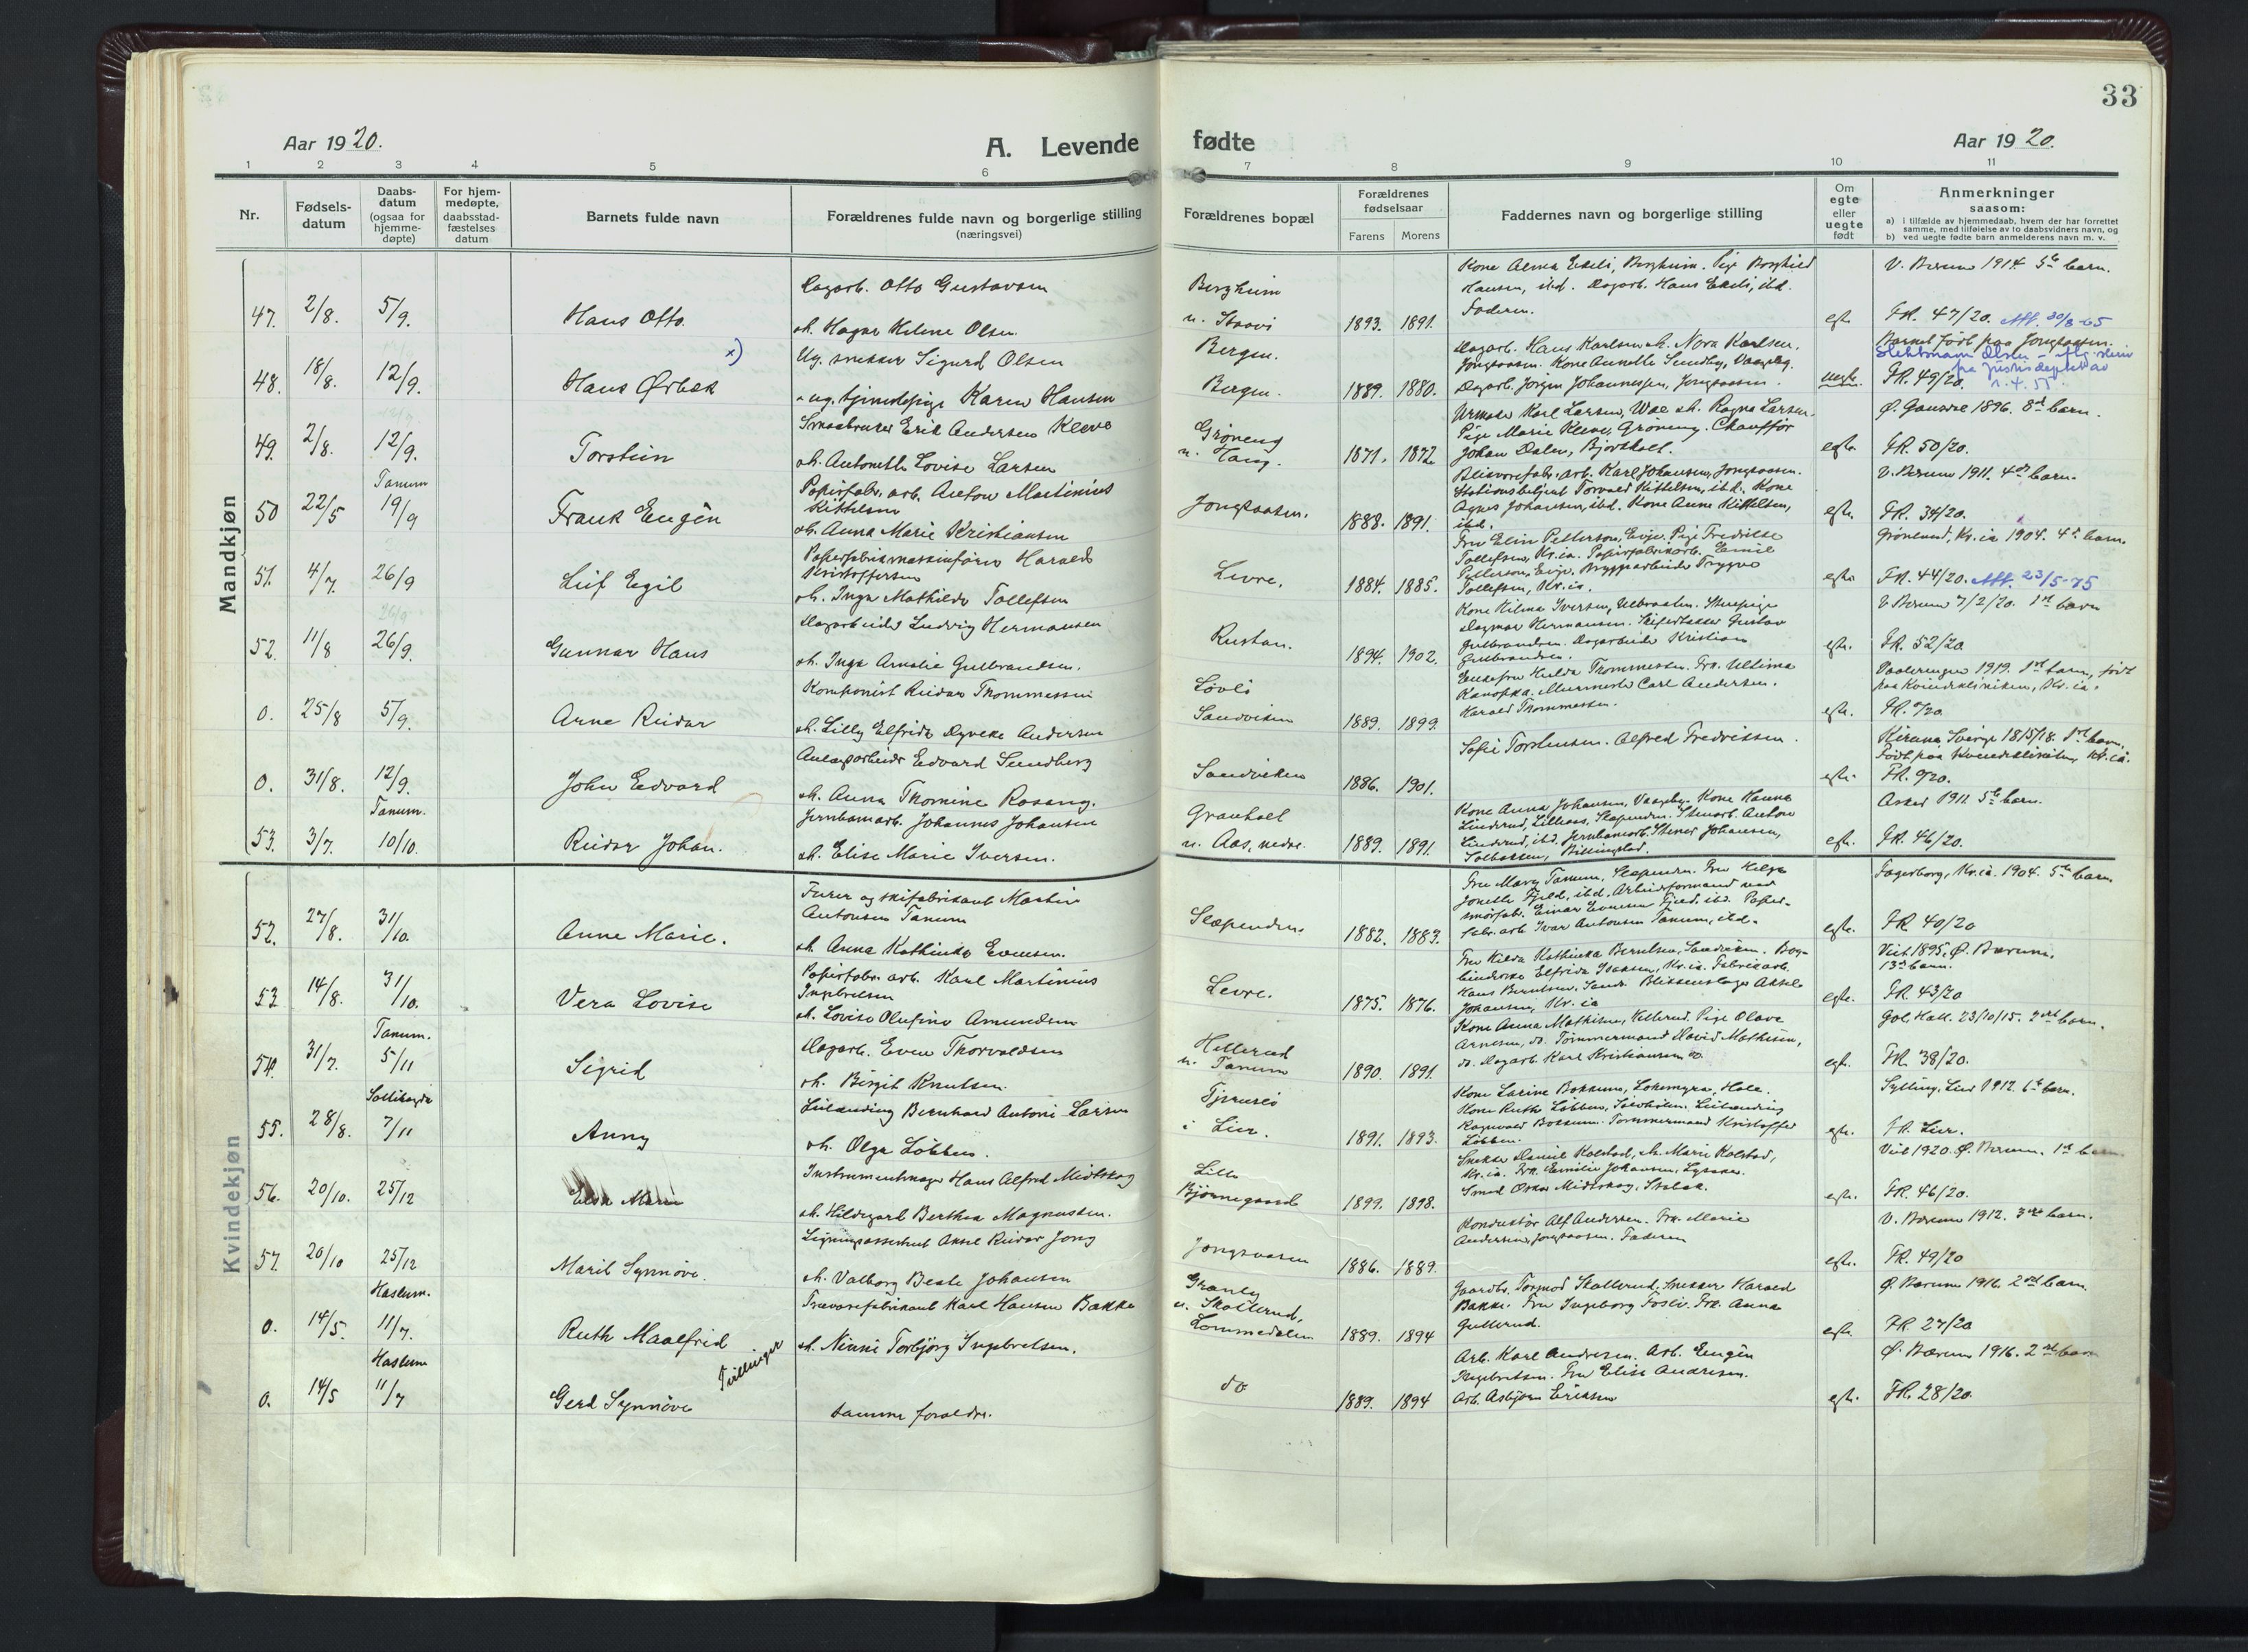 33
Aar 1920.
A. Levende fødte
Aar 1920.
1 2 3 4 5 6 7 8 9 10 11
Nr.
Fødsels-
datum
Daabs-
datum
(ogsaa for
hjemme-
døpte)
For hjem-
medøpte,
daabsstad-
fæstelses
datum
Barnets fulde navn
Forældrenes fulde navn og borgerlige stilling
(næringsvei)
Forældrenes bopæl
Forældrenes
fødselsaar
Farens Morens
Faddernes navn og borgerlige stilling
Om
egte
eller
uegte
født
Anmerkninger
saasom:
a) i tilfælde av hjemmedaab, hvem der har forrettet
samme, med tilføielse av to daabsvidners navn, og
b) ved uegte fødte barn anmelderens navn m. v.
Mandkjøn
47. 2/8. 5/9. Hans Otto.
Dagarb. Otto Gustavsen
oh. Hagar Helene Olsen
Bergheim
u. Staavi
1893. 1891.
Kone Alma Ekeli, Bergheim. Pige Borghild
Hansen, ibd. Dagarb. Hans Ekeli, ibd.
Faderen.
egte
V. Bærum 1914. 5te barn.
FR. 47/20. Att. 30/8-65
48. 18/8. 12/9. Hans Ørbek x)
Ug. snekker Sigurd Olsen
ug. tjenestepige Karen Hansen
Bergen.
Bergen.
1889. 1880.
Dagarb. Hans Karlsen, oh. Nora Karlsen,
Jongsaasen. Kone Annette Sundby,
Dagarb. Jørgen Johannessen, Jongsaasen.
uegte.
Barnet født paa Jongsaasen.
FR. 49/20.
49. 2/8. 12/9. Torstein
Smaabruker Erik Andersen Kleve
oh. Antonette Lovise Larsen
Grøneng
u. Tang.
1871. 1872
Urmaker Karl Larsen, oh. Ragna Larsen.
Pige Marie Kleve, Grøneng. Chauffør
Johan Dalen, Bjerkholt.
egte.
Ø. Gausdal 1896. 8de barn.
FR. 50/20.
50 22/5 Tanum 19/9 Frank Eugèn
Papirfabr. arb. Anton Martinius
Kittelsen
oh. Anna Marie Kristiansen
Jongsaasen.
1888. 1891.
Blikvarefabr. arb. Karl Johansen, Jongsaasen.
Stationsbetjent Torvald Kittelsen, ibd. Kone
Agnes Johansen, ibd. Kone Anne Kittelsen,
ibd.
egte.
V. Bærum 1911. 4de barn.
FR. 34/20.
51. 4/7. 26/9 Leif Egil
Papirfabrikmaskinfører Harald
Kristoffersen
oh. Inga Mathilde Tollefsen
Levre.
1884. 1885.
Fru Elin Petterson, Evje. Pige Fredrikke
Tollefsen, Kr.ia. Papirfabrikarb. Emil
Petterson, Evje. Bryggearbeider Trygve
Tollefsen, Kr.ia.
egte
Grønland, Kr.ia 1904. 4de barn.
FR. 44/20. Att. 23/5-75
52. 11/8 26/9. Gunnar Hans
Dagarbeider Ludvig Hermansen
oh. Inga Amalie Gulbrandsen.
Rustan.
1894. 1902.
Kone Hilma Iversen, Ulbraaten. Stuepige
Dagmar Hermansen. Gustav
Gulbrandsen. Dagarbeider Kristian
Gulbrandsen.
egte.
V. Bærum 7/2/20. 1ste barn
FR. 52/20
0. 25/8 5/9. Arne Reidar
Komponist Reidar Thommessen
oh. Lilly Elfride Dyveke Andersen
Løvli
Sandviken
1889. 1899.
Enkefru Hulda Thommessen. Frk. Ultima
Kanopka. Murmester Carl Andersen.
Harald Thommessen.
egte.
Vaalerengen 1919. 1ste barn, født
paa Kvindeklinikken, Kr.ia.
FR. 0/20
0. 31/8. 12/9. John Edvard
Anlægsarbeider Edvard Sundberg
oh. Anna Thomine Rosang.
Sandviken
1886. 1901.
Sofie Torstensen. Alfred Fredriksen.
egte.
Kiruna Sverige 18/5/18. 1ste barn.
Født paa Kvindeklinikken, Kr.ia.
FR. 0/20.
53. 3/7. Tanum. 10/10. Reidar Johan.
Jernbanearb. Johannes Johansen
oh. Elise Marie Iversen.
Granholt
u. Aas, nedre.
1889. 1891.
Kone Anna Johansen, Kone Hanna
Linderud, Lilleaas, Slependen. Stenarb. Anton
Linderud, ibd. Jernbanearb. Stener Johansen,
Solbakken, Billingstad.
egte.
Asker 1911. 5te barn.
FR. 46/20.
Kvindekjøn
52. 27/8. 31/10. Anne Marie.
Furer og skifabrikant Martin
Antonsen Tanum
oh. Anna Kathinka Evensen.
Slependen.
1882. 1883.
Fru Mary Tanum, Slependen. Fru Helga
Jonette Fjeld, ibd. Arbeidsformand ved
smørfabr. Einar Evensen Fjeld, ibd. Papir-
fabr. arb. Ivar Antonsen Tanum, ibd.
egte.
Fagerborg, Kr.ia. 1904. 5te barn.
FR. 40/20
53. 14/8. 31/10. Vera Lovise
Papirfabr. arb. Karl Martinius
Ingebretsen
oh. Lovise Olufine Amundsen
Levre.
1875. 1876.
Fru Hilda Kathinka Berntsen, Sandviken. Bog-
binderske Elfrida Isaksen, Kr.ia. Fabrikarb.
Hans Berntsen, Sandv. Blikkenslager Aksel
Johansen, Kr.ia
egte.
Viet 1895, Ø. Bærum.
13de barn.
FR. 43/20
54. 31/7. Tanum. 5/11 Sigrid
Dagarb. Even Thorvaldsen
oh. Birgit Knutsen.
Hellerud
u. Tanum
1890. 1891.
Kone Anna Mathisen, Hellerud. Pige Olava
Arnesen, do. Tømmermand David Mathisen,
do. Dagarb. Karl Kristiansen do.
egte.
Gol, Hall. 23/10/15. 2det barn.
FR. 38/20.
55. 28/8. Sollihøgda 7/11 Anny
Leilænding Bernhard Antoni Larsen
oh. Olga Løbben.
Tjernsli
i Lier.
1891. 1893.
Kone Larine Bokkum, Lokemyra, Hole.
Kone Ruth Løbben, Leilænding
Ragnvald Bokkum. Tømmermand Kristoffer
Løbben.
egte.
Sylling, Lier 1912. 6te barn.
FR. Lier.
56. 20/10. 25/12 Elsa Marie
Instrumentmager Hans Alfred Midtskog
oh. Hildegard Berthea Magnussen.
Lille
Bjørnegaard
1899. 1898.
Snekker Daniel Kolstad, oh. Marie Kolstad,
Kr.ia. Frk. Emilie Johansen, Lysaker.
Smed Oskar Midtskog, Stabek.
egte.
Viet 1920. Ø. Bærum. 1ste barn.
FR. 46/20.
57. 20/10 25/12 Marit Synnøve.
Ligningsassistent Aksel Reidar Jong
oh. Valborg Beate Johansen
Jongsaasen
1886. 1889.
Konduktør Alf Andersen. Fru Marie
Andersen, Jongsaasen. Faderen
egte.
V. Bærum 1912. 3die barn.
FR. 49/20
0. 14/5. Haslum. 11/7. Ruth Maalfrid
Trævarefabrikant Karl Hansen Bakke
oh. Ninni Torbjørg Ingebretsen.
Granly
u. Skollerud,
Lommedalen
1889. 1894
Gaardbr. Tormod Skollerud. Snekker Harald
Bakke. Fru Ingeborg Fosli. Frk. Anna
Gullerud.
egte
Ø. Bærum 1916. 2det barn
FR. 27/20
Tvillinger
0. 14/5 Haslum 11/7 Gerd Synnøve
samme forældre.
do
1889. 1894
Arb. Karl Andresen. Arb. Eugèn
Ingebretsen. Fru Elise Andresen.
Arb. Asbjørn Eriksen
egte.
Ø. Bærum 1916. 2det barn
FR. 28/20.